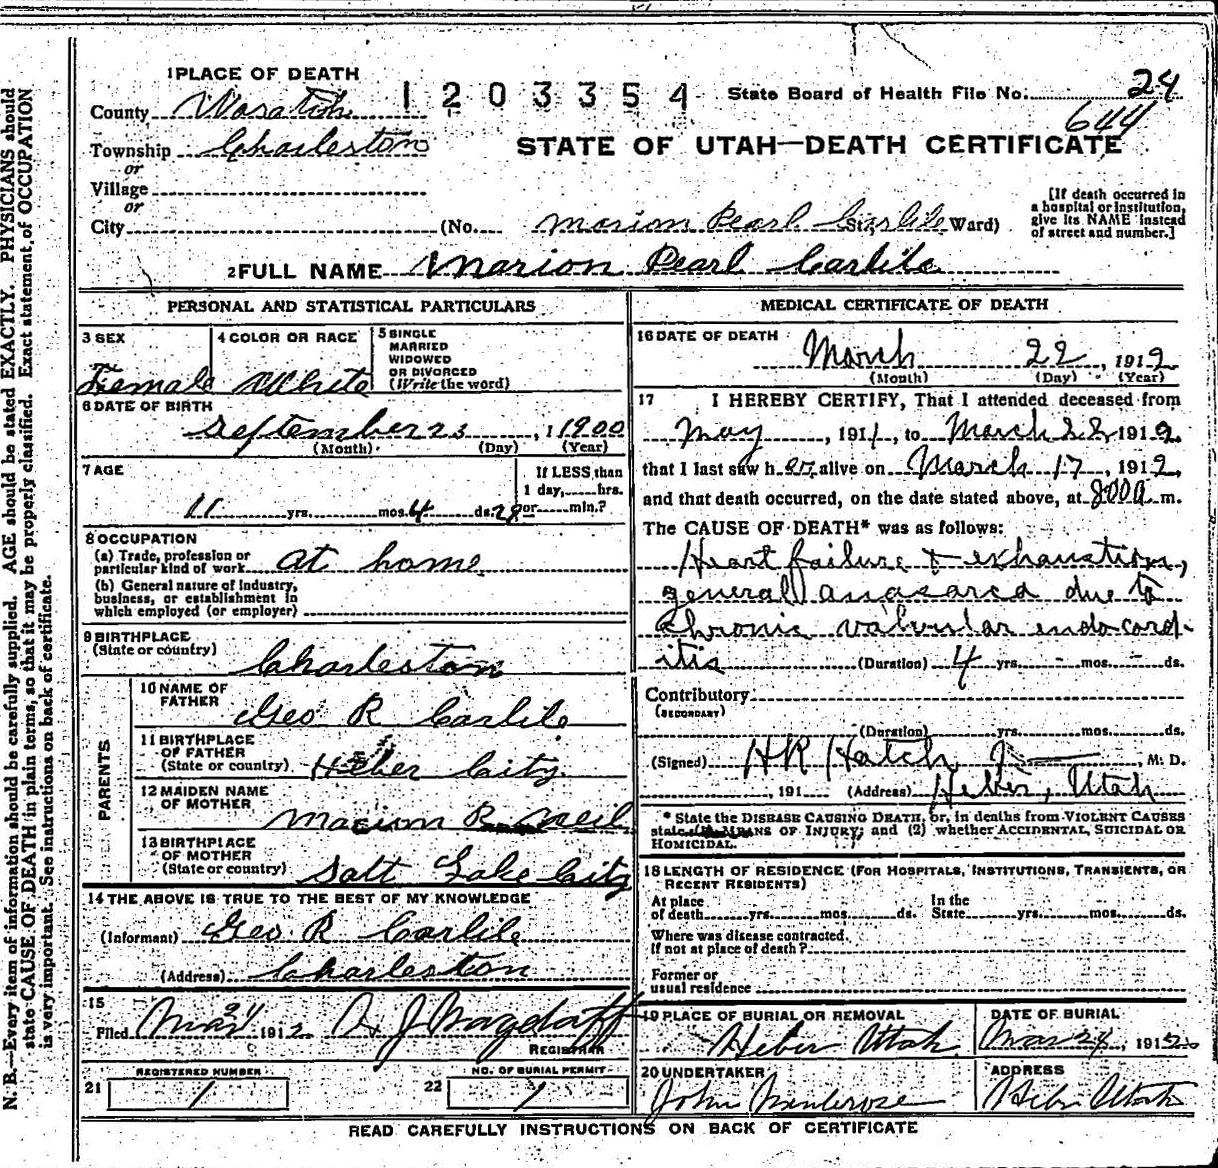 1 PLACE OF DEATH
1203354
State Board of Health File No. 24
644
County Wasatch
Township Charleston
STATE OF UTAH—DEATH CERTIFICATE
or
Village
or
City (No. Marion Pearl Carlile St. Ward)
[If death occurred in
a hospital or institution,
give its NAME instead
of street and number.]
2 FULL NAME Marion Pearl Carlile
PERSONAL AND STATISTICAL PARTICULARS
3 SEX
Female
4 COLOR OR RACE
White
5 SINGLE
MARRIED
WIDOWED
OR DIVORCED
(Write the word)
6 DATE OF BIRTH
September 23, 1900
(Month) (Day) (Year)
7 AGE
11 yrs. mos. 4 ds. 28
If LESS than
1 day, hrs.
or min.?
8 OCCUPATION
(a) Trade, profession or
particular kind of work at home
(b) General nature of industry,
business, or establishment in
which employed (or employer)
9 BIRTHPLACE
(State or country) Charleston
PARENTS
10 NAME OF
FATHER Geo R Carlile
11 BIRTHPLACE
OF FATHER
(State or country) Heber City
12 MAIDEN NAME
OF MOTHER Marion R Neil
13 BIRTHPLACE
OF MOTHER
(State or country) Salt Lake City
14 THE ABOVE IS TRUE TO THE BEST OF MY KNOWLEDGE
(Informant) Geo R Carlile
(Address) Charleston
15
Filed Mar 24 1912
REGISTRAR
REGISTERED NUMBER
21 1
NO. OF BURIAL PERMIT
22 1
MEDICAL CERTIFICATE OF DEATH
16 DATE OF DEATH
March 22, 1912
(Month) (Day) (Year)
17 I HEREBY CERTIFY, That I attended deceased from
May, 1911, to March 22 1912,
that I last saw h er alive on March 17, 1912,
and that death occurred, on the date stated above, at 8:00 a m.
The CAUSE OF DEATH* was as follows:
Heart failure & exhaustion,
general anasarca due to
Chronic valvular endocard-
itis (Duration) 4 yrs. - mos. - ds.
Contributory
(SECONDARY)
(Duration) yrs. mos. ds.
(Signed) H R Hatch, M. D.
, 191 (Address) Heber, Utah
* State the DISEASE CAUSING DEATH, or, in deaths from VIOLENT CAUSES
state (1) MEANS OF INJURY; and (2) whether ACCIDENTAL, SUICIDAL OR
HOMICIDAL.
18 LENGTH OF RESIDENCE (FOR HOSPITALS, INSTITUTIONS, TRANSIENTS, OR
RECENT RESIDENTS)
At place
of death yrs. mos. ds.
In the
State yrs. mos. ds.
Where was disease contracted.
If not at place of death?
Former or
usual residence
19 PLACE OF BURIAL OR REMOVAL
Heber Utah
DATE OF BURIAL
Mar 24, 1912
20 UNDERTAKER
John
ADDRESS
Heber Utah
READ CAREFULLY INSTRUCTIONS ON BACK OF CERTIFICATE
N. B.—Every item of information should be carefully supplied. AGE should be stated EXACTLY. PHYSICIANS should
state CAUSE OF DEATH in plain terms, so that it may be properly classified. Exact statement of OCCUPATION
is very important. See instructions on back of certificate.